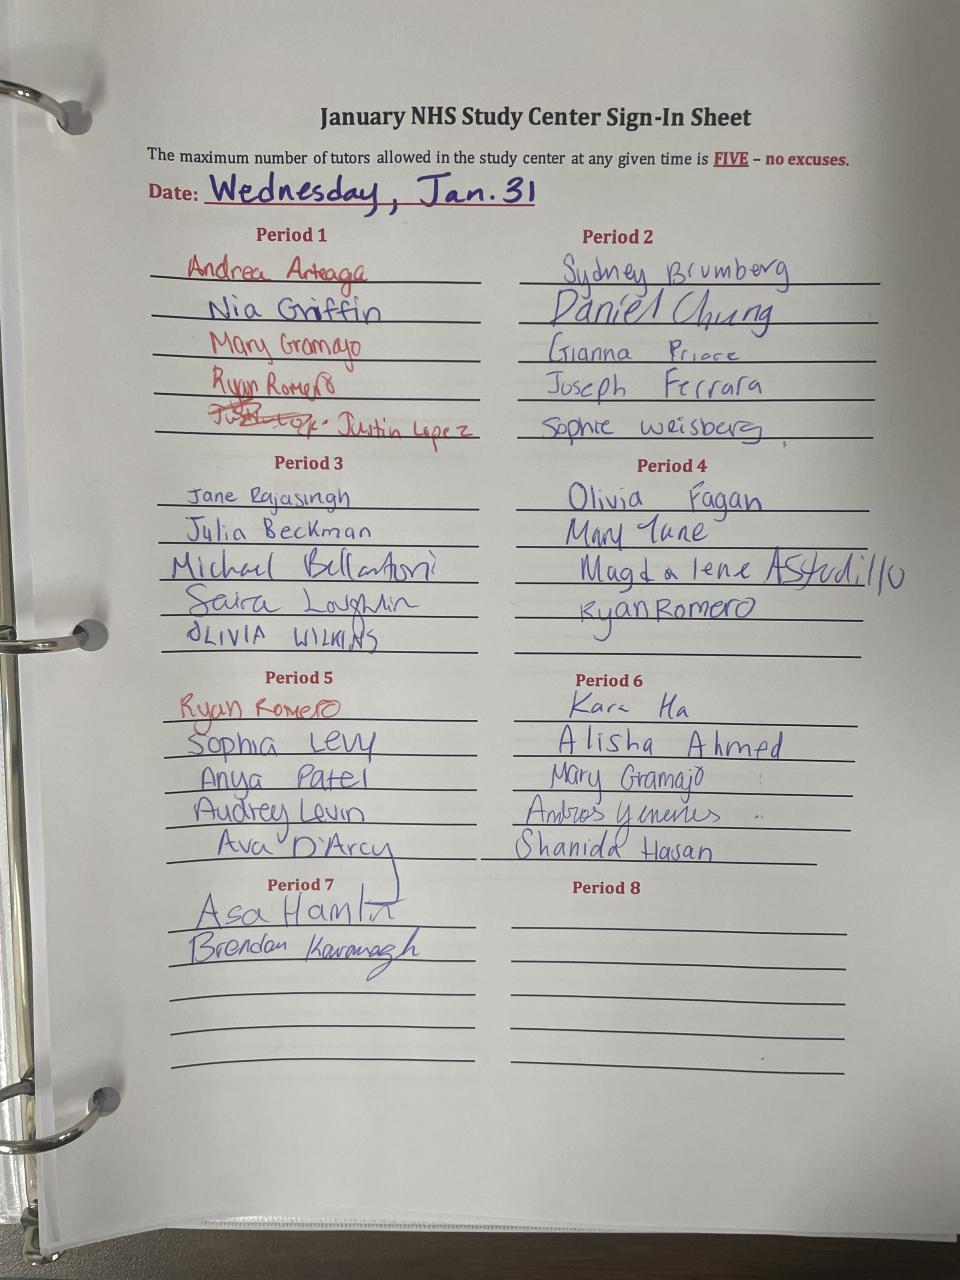 January NHS Study Center Sign-In Sheet
The maximum number of tutors allowed in the study center at any given time is FIVE – no excuses.
Date: Wednesday, Jan. 31
Period 1
Andrea Arteaga
Nia Griffin
Mary Gramajo
Ryan Romero
Justin Lopez
Period 2
Sydney Brumberg
Daniel Chung
Gianna Priore
Joseph Ferrara
Sophie Weisberg
Period 3
Jane Rajasingh
Julia Beckman
Michael Bellantoni
Saira Loughlin
OLIVIA WILKINS
Period 4
Olivia Fagan
Mary
Magdalene Astudillo
Ryan Romero
Period 5
Ryan Romero
Sophia Levy
Anya Patel
Audrey Levin
Ava D'Arcy
Period 6
Kara Ha
Alisha Ahmed
Mary Gramajo
Shanida Hasan
Period 7
Asa Hamlin
Brendan Kavanagh
Period 8